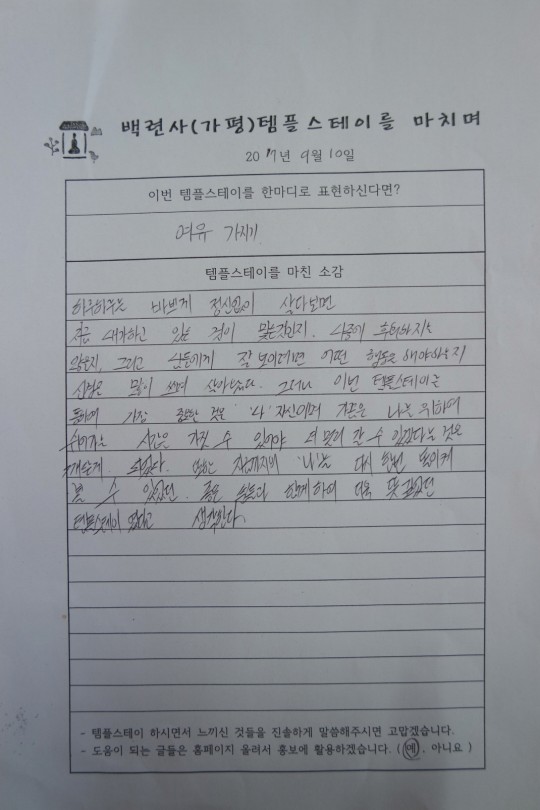 백련사(가평)템플스테이를 마치며
2017년 9월 10일
이번 템플스테이를 한마디로 표현하신다면?
여유 가지기
템플스테이를 마친 소감
하루하루를 바쁘게 정신없이 살다보면
지금 내가하고 있는 것이 맞는것인지. 나중에 후회하지는
않을지, 그리고 남들에게 잘 보이려면 어떤 행동을 해야하는지
신경을 많이 쓰며 살아왔다. 그러나 이번 템플스테이를
통하여 가장 중요한 것은 '나' 자신이며 가끔은 나를 위하여
쉬어가는 시간을 가질 수 있어야 더 멀리 갈 수 있겠다는 것을
깨닫게 되었다. 또한 지금까지의 '나'를 다시 한번 돌이켜
볼 수 있었던. 좋은 분들과 함께하여 더욱 뜻 깊었던
템플스테이 였다고 생각한다.
- 템플스테이 하시면서 느끼신 것들을 진솔하게 말씀해주시면 고맙겠습니다.
- 도움이 되는 글들은 홈페이지 올려서 홍보에 활용하겠습니다. (예, 아니요)